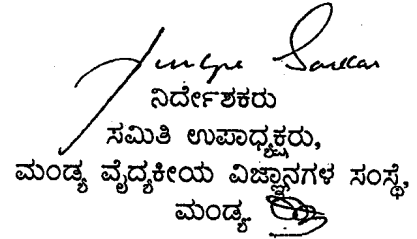 ನಿರ್ದೇಶಕರು
ಸಮಿತಿ ಉಪಾಧ್ಯಕ್ಷರು,
ಮಂಡ್ಯ ವೈದ್ಯಕೀಯ ವಿಜ್ಞಾನಗಳ ಸಂಸ್ಥೆ,
ಮಂಡ್ಯ.